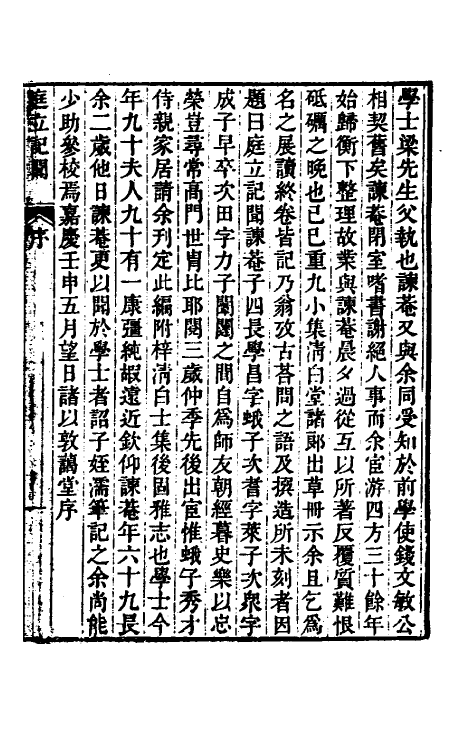 學士梁先生父執也諫菴又與余同受知於前學使錢文敏公
相契舊矣諫菴閉室嗜書謝絕人事而余宦游四方三十餘年
始歸衡下整理故業與諫菴晨夕過從互以所著反覆質難恨
砥礪之晚也己巳重九小集清白堂諸郞出草冊示余且乞爲
名之展讀終卷皆記乃翁攷古荅問之語及撰造所未刻者因
題曰庭立記聞諫菴子四長學昌字蛾子次耆字萊子次衆字
成子早卒次田字力子闈闥之間自爲師友朝經暮史樂以忘
榮豈尋常高門世胄比耶閱三歲仲季先後出宦惟蛾子秀才
侍親家居請余刋定此編附梓清白士集後固雅志也學士今
年九十夫人九十有一康彊純嘏遠近欽仰諫菴年六十九長
余二歲他日諫菴更以聞於學士者詔子姪濡筆記之余尚能
少助參校焉嘉慶壬申五月望日諸以敦藹堂序
庭立記聞 序